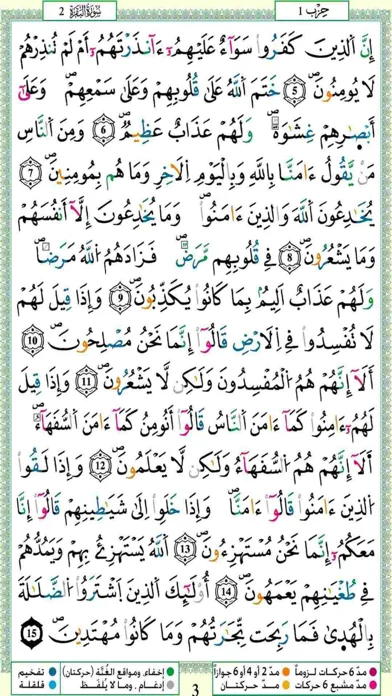 حِزْب 1 سُورَةُ البَقَرَةِ 2
إِنَّ اَ۬لذِينَ كَفَرُواْ سَوَآءٌ عَلَيْهِمُۥٓ ءَآنذَرْتَهُمُۥٓ أَمْ لَمْ تُنذِرْهُمْ
لَا يُومِنُونَۖ 5 خَتَمَ اَ۬للَّهُ عَلَىٰ قُلُوبِهِمْ وَعَلَىٰ سَمْعِهِمْۖ وَعَلَىٰٓ
أَبْصٰ۪رِهِمْ غِشَٰوَةٞۖ وَلَهُمْ عَذَابٌ عَظِيمٞۖ 6 وَمِنَ اَ۬لنَّاسِ
مَنْ يَّقُولُ ءَامَنَّا بِاللَّهِ وَبِالْيَوْمِ اِ۬لَاخِرِ وَمَا هُم بِمُومِنِينَۖ 7
يُخَٰدِعُونَ اَ۬للَّهَ وَالذِينَ ءَامَنُواْۖ وَمَا يُخَٰدِعُونَ إِلَّآ أَنفُسَهُمْ
وَمَا يَشْعُرُونَۖ 8 فِے قُلُوبِهِم مَّرَضٞۖ فَزَادَهُمُ اُ۬للَّهُ مَرَضاٗۖ
وَلَهُمْ عَذَابٌ اَلِيمُۢ بِمَا كَانُواْ يُكَذِّبُونَۖ 9 وَإِذَا قِيلَ لَهُمْ
لَا تُفْسِدُواْ فِے اِ۬لَارْضِ قَالُوٓاْ إِنَّمَا نَحْنُ مُصْلِحُونَۖ 10
أَلَآ إِنَّهُمْ هُمُ اُ۬لْمُفْسِدُونَ وَلَٰكِن لَّا يَشْعُرُونَۖ 11 وَإِذَا قِيلَ
لَهُمُۥٓ ءَامِنُواْ كَمَآ ءَامَنَ اَ۬لنَّاسُ قَالُوٓاْ أَنُومِنُ كَمَآ ءَامَنَ اَ۬لسُّفَهَآءُۖ
أَلَآ إِنَّهُمْ هُمُ اُ۬لسُّفَهَآءُ وَلَٰكِن لَّا يَعْلَمُونَۖ 12 وَإِذَا لَقُواْ
اُ۬لذِينَ ءَامَنُواْ قَالُوٓاْ ءَامَنَّاۖ وَإِذَا خَلَوِاْ اِلَىٰ شَيَٰطِينِهِمْ قَالُوٓاْ إِنَّا
مَعَكُمُۥٓ إِنَّمَا نَحْنُ مُسْتَهْزِءُونَۖ 13 اَ۬للَّهُ يَسْتَهْزِۓُ بِهِمْ وَيَمُدُّهُمْ
فِے طُغْيَٰنِهِمْ يَعْمَهُونَۖ 14 أُوْلَٰٓئِكَ اَ۬لذِينَ اَ۪شْتَرَوُاْ اُ۬لضَّلَٰلَةَ
بِالْهُد۪ىٰ فَمَا رَبِحَت تِّجَٰرَتُهُمْ وَمَا كَانُواْ مُهْتَدِينَۖ 15
مدّ 6 حركات لزوماً مدّ 2 أو 4 أو 6 جوازاً إخفاء، ومواقع الغُنَّة (حركتان) تفخيم
مدّ مشبع 6 حركات مدّ حركتان إدغام، وما لا يُلفَظ قلقلة
3